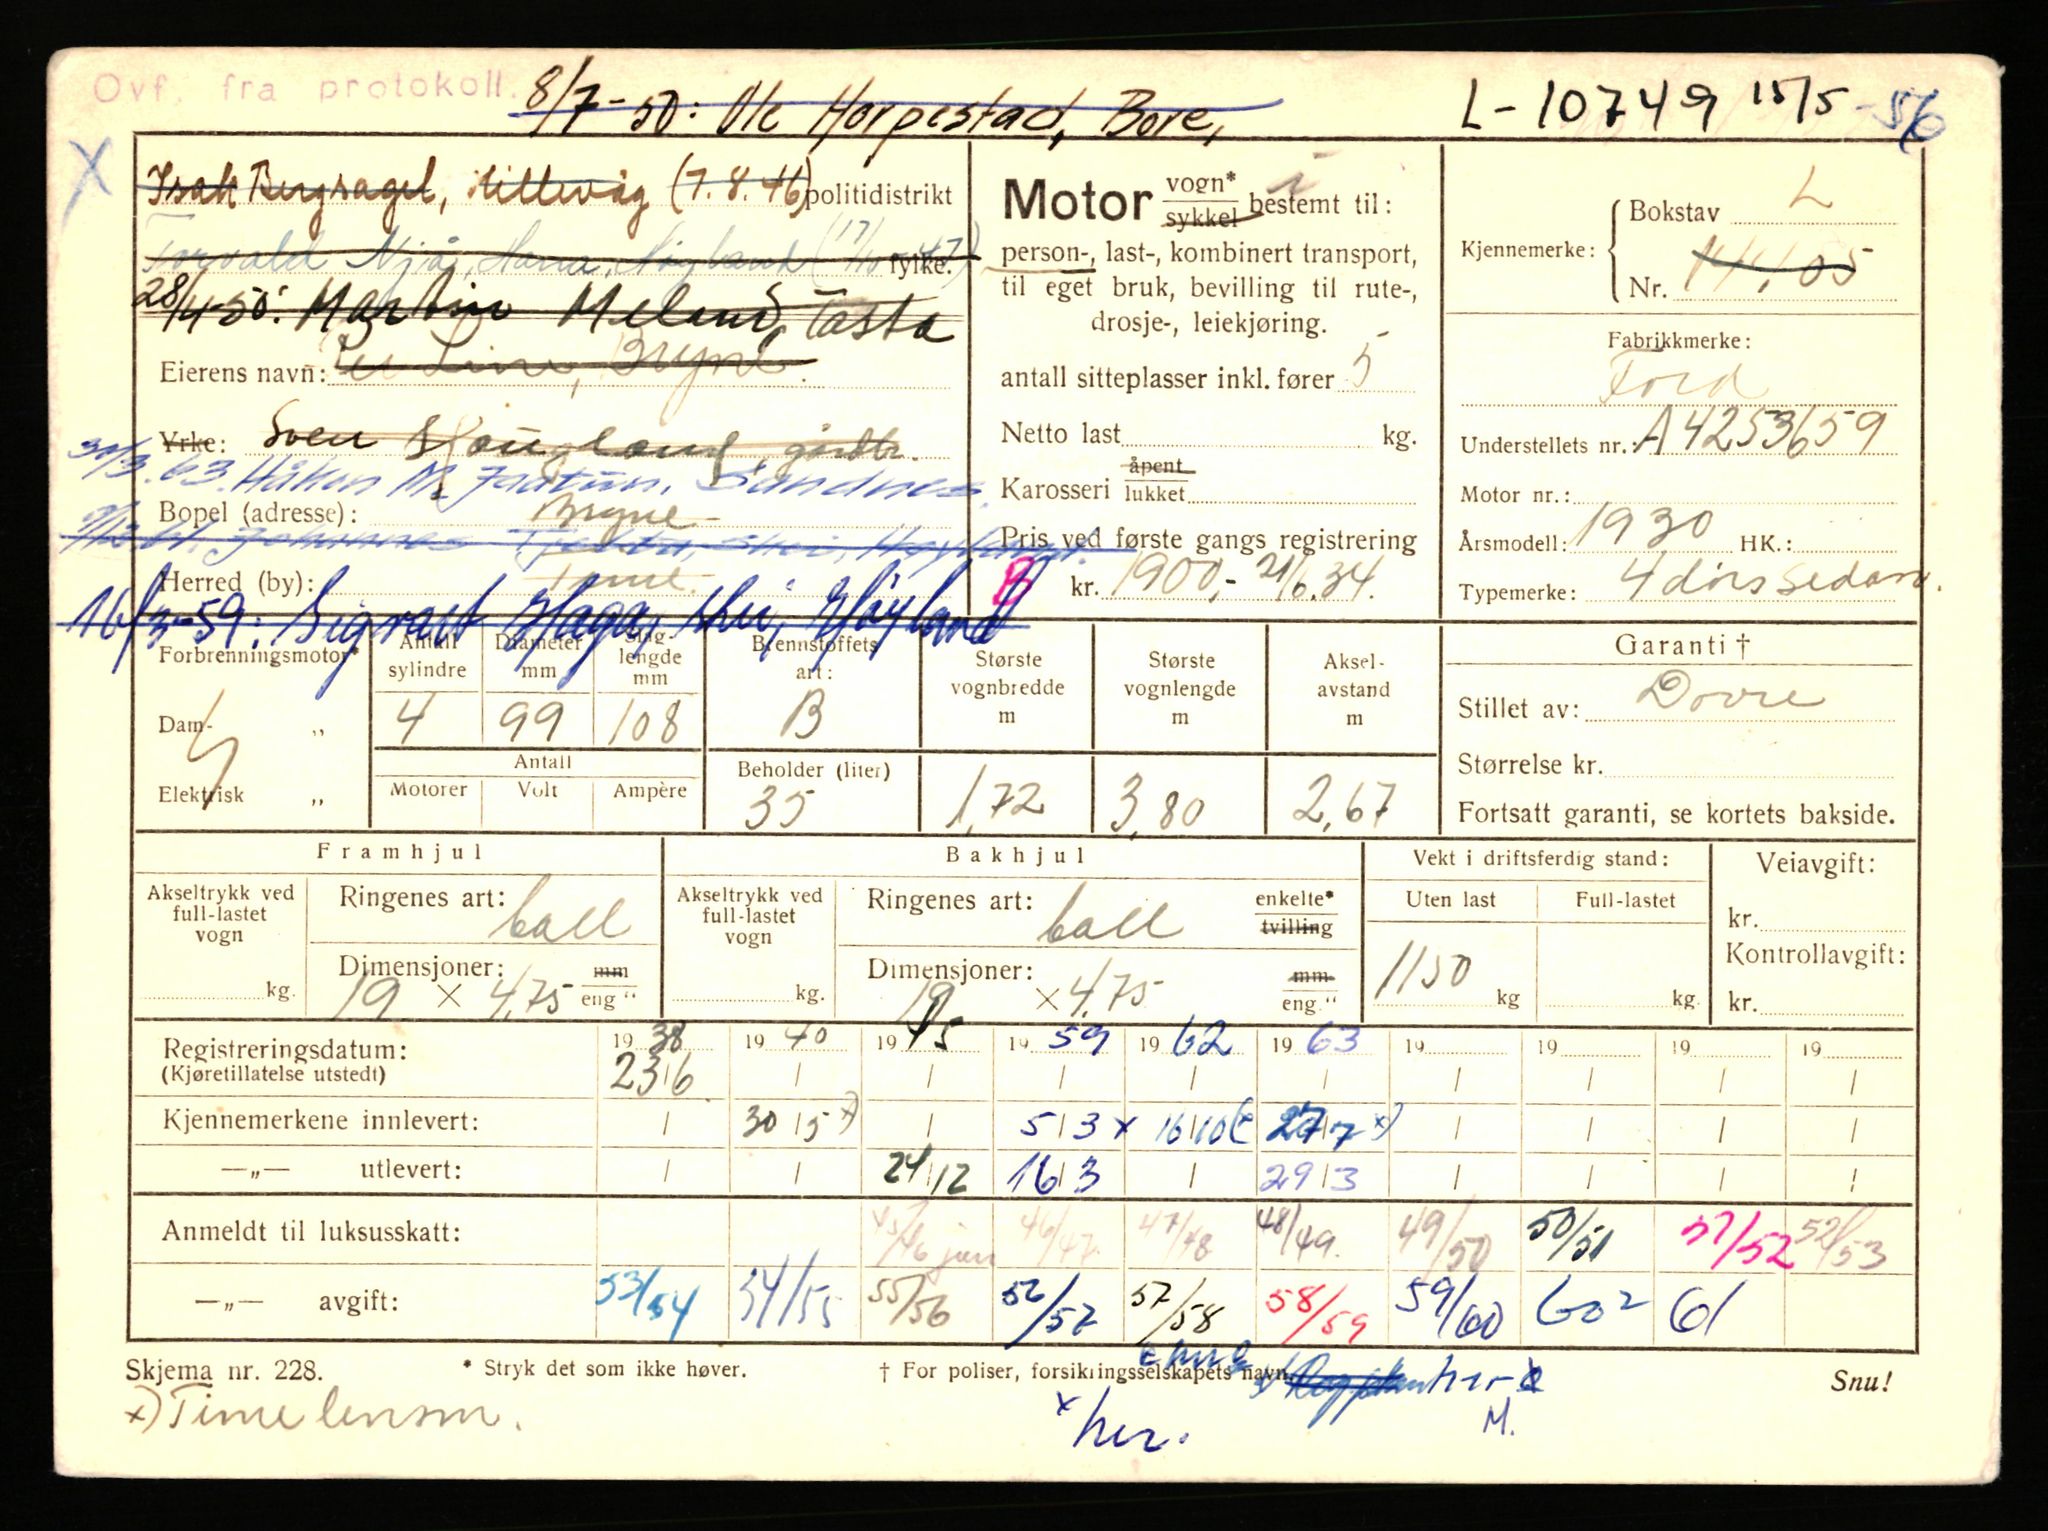 Ovf. fra protokoll.
8/7-50: Ole Harpestad, Bore,
L-10749 15/5-56
X
Isak Bergsagel, Hillevåg (7.8.46) politidistrikt
Torvald Njå, Hana, Høyland (17/10 47) fylke.
28/4-50: Martin Meland, Tasta
Eierens navn: Line, Bryne.
Yrke: Sven Haugland, gårdbr.
30/3.63. Håkon M. Jaatun, Sandnes.
Bopel (adresse): Bryne
Johannes
Herred (by): Time.
16/3-59: Sigvalt Haga, Høyland
Motor vogn* sykkel bestemt til:
person-, last-, kombinert transport,
til eget bruk, bevilling til rute-,
drosje-, leiekjøring.
antall sitteplasser inkl. fører 5
Netto last kg.
Karosseri åpent lukket
Pris ved første gangs registrering
B kr. 1900,- 21/6.34.
Kjennemerke: Bokstav L
Nr.
Fabrikkmerke:
Ford
Understellets nr.: A4253659
Motor nr.:
Årsmodell: 1930 HK.:
Typemerke: 4 dørs sedan.
Forbrenningsmotor*
Dam- „
Elektrisk „
Antall sylindre Diameter mm Slaglengde mm
4 99 108
Antall
Motorer Volt Ampère
Brennstoffets art:
B
Beholder (liter)
35
Største vognbredde m
1,72
Største vognlengde m
3,80
Aksel-avstand m
2,67
Garanti †
Stillet av: Dovre
Størrelse kr.
Fortsatt garanti, se kortets bakside.
Framhjul
Akseltrykk ved full-lastet vogn
kg.
Ringenes art: ball
Dimensjoner: mm
19 × 4,75 eng "
Bakhjul
Akseltrykk ved full-lastet vogn
kg.
Ringenes art: ball enkelte* tvilling
Dimensjoner: mm
19 × 4,75 eng."
Vekt i driftsferdig stand:
Uten last Full-lastet
1150 kg kg.
Veiavgift:
kr.
Kontrollavgift:
kr.
Registreringsdatum: 1938 1940 1945 1959 1962 1963 19 19 19 19
(Kjøretillatelse utstedt) 23/6
Kjennemerkene innlevert: 30/5 x) 5/3 x 16/10 27/7 x)
—„— utlevert: 24/12 16/3 29/3
Anmeldt til luksusskatt: 45/46 jan 46/47. 47/48 48/49. 49/50 50/51 51/52 52/53
—„— avgift: 53/54 54/55 55/56 56/57 57/58 58/59 59/60 60 2 61
Skjema nr. 228. * Stryk det som ikke høver. † For poliser, forsikringsselskapets navn. Snu!
x) Time lensm.
x her.
M.